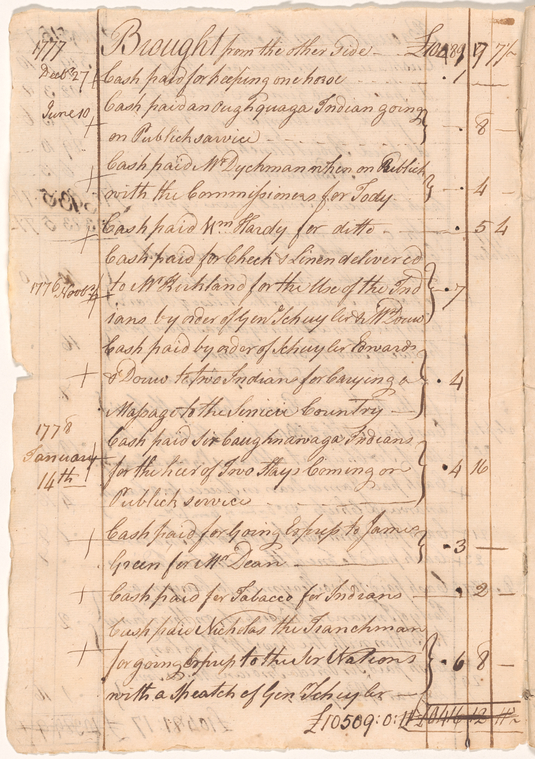 1777 Brought from the other Side
Decbr 27 Cash paid for keeping one horse 1
June 10 Cash paid an Oughquaga Indian going
on Publick sarvice 8
Cash paid Mr Dychman when on Publick
with the Commissioners for Tody 4
Cash paid Wm Hardy for ditto 5 4
Cash paid for Check & Linen delivered
1776 to Mr for the Use of the Ind 7
ians by order of Genl Schuyler & Mr Douw
Cash paid by order of Schuyler Edwards
& Douw to two Indians for Carrying a 4
Massage to the Country
1778 Cash paid Six Caughnawaga Indians
January for the hier of Two Slays Coming on 4 16
14th Publick service
Cash paid for Going Express to James 3
Green for Mr Dean
Cash paid for Tabacco for Indians 2
Cash paid Nicholas the Franchman
for going Express to the Six Nations 6 8
with a Speatch of Genl Schuyler
£10509:0:11